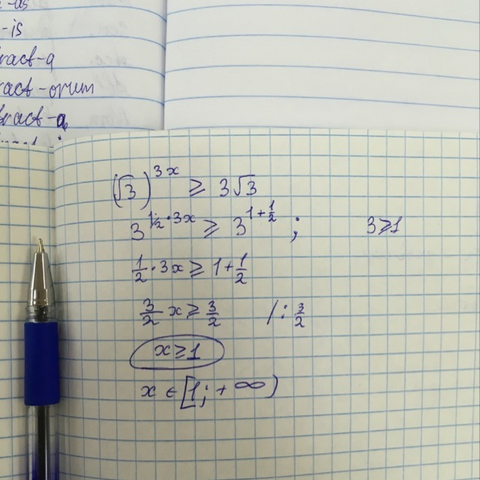 -is
ract-a
ract-orum
tract-a
(√3)^3x ≥ 3√3
3^(1/2·3x) ≥ 3^(1+1/2) ; 3≥1
1/2·3x ≥ 1+1/2
3/2 x ≥ 3/2 /: 3/2
x ≥ 1
x ∈ [1; +∞)